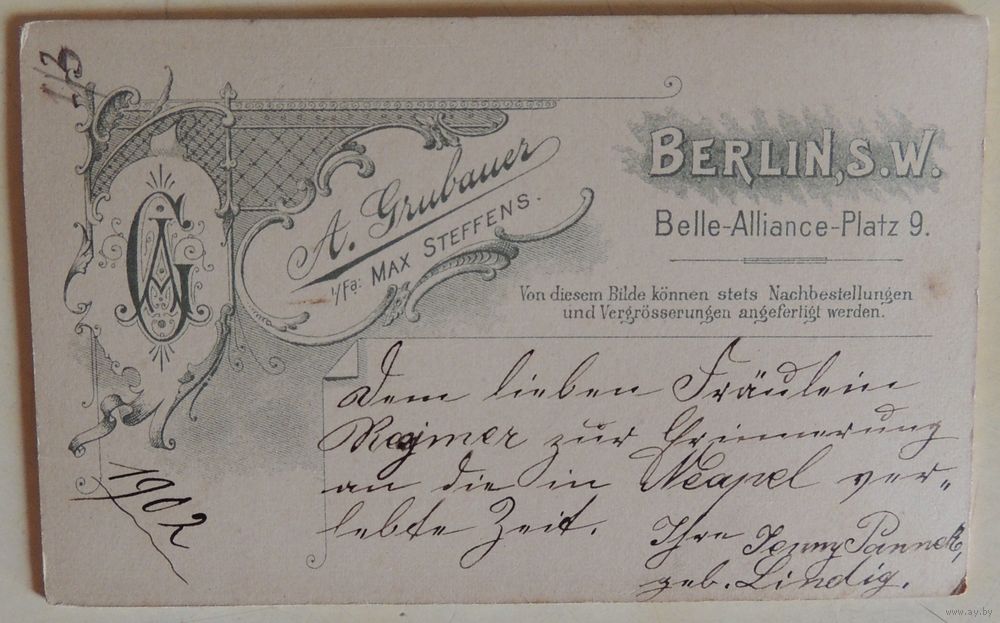 1/3
GA
A. Grubauer
i/Fa: MAX STEFFENS.
BERLIN, S.W.
Belle-Alliance-Platz 9.
Von diesem Bilde können stets Nachbestellungen
und Vergrösserungen angefertigt werden.
Dem lieben Fräulein
zur Erinnerung
an die in Neapel ver-
lebte Zeit.
Ihre Jenny Panneck,
geb. Lindig.
1902
www.ay.by